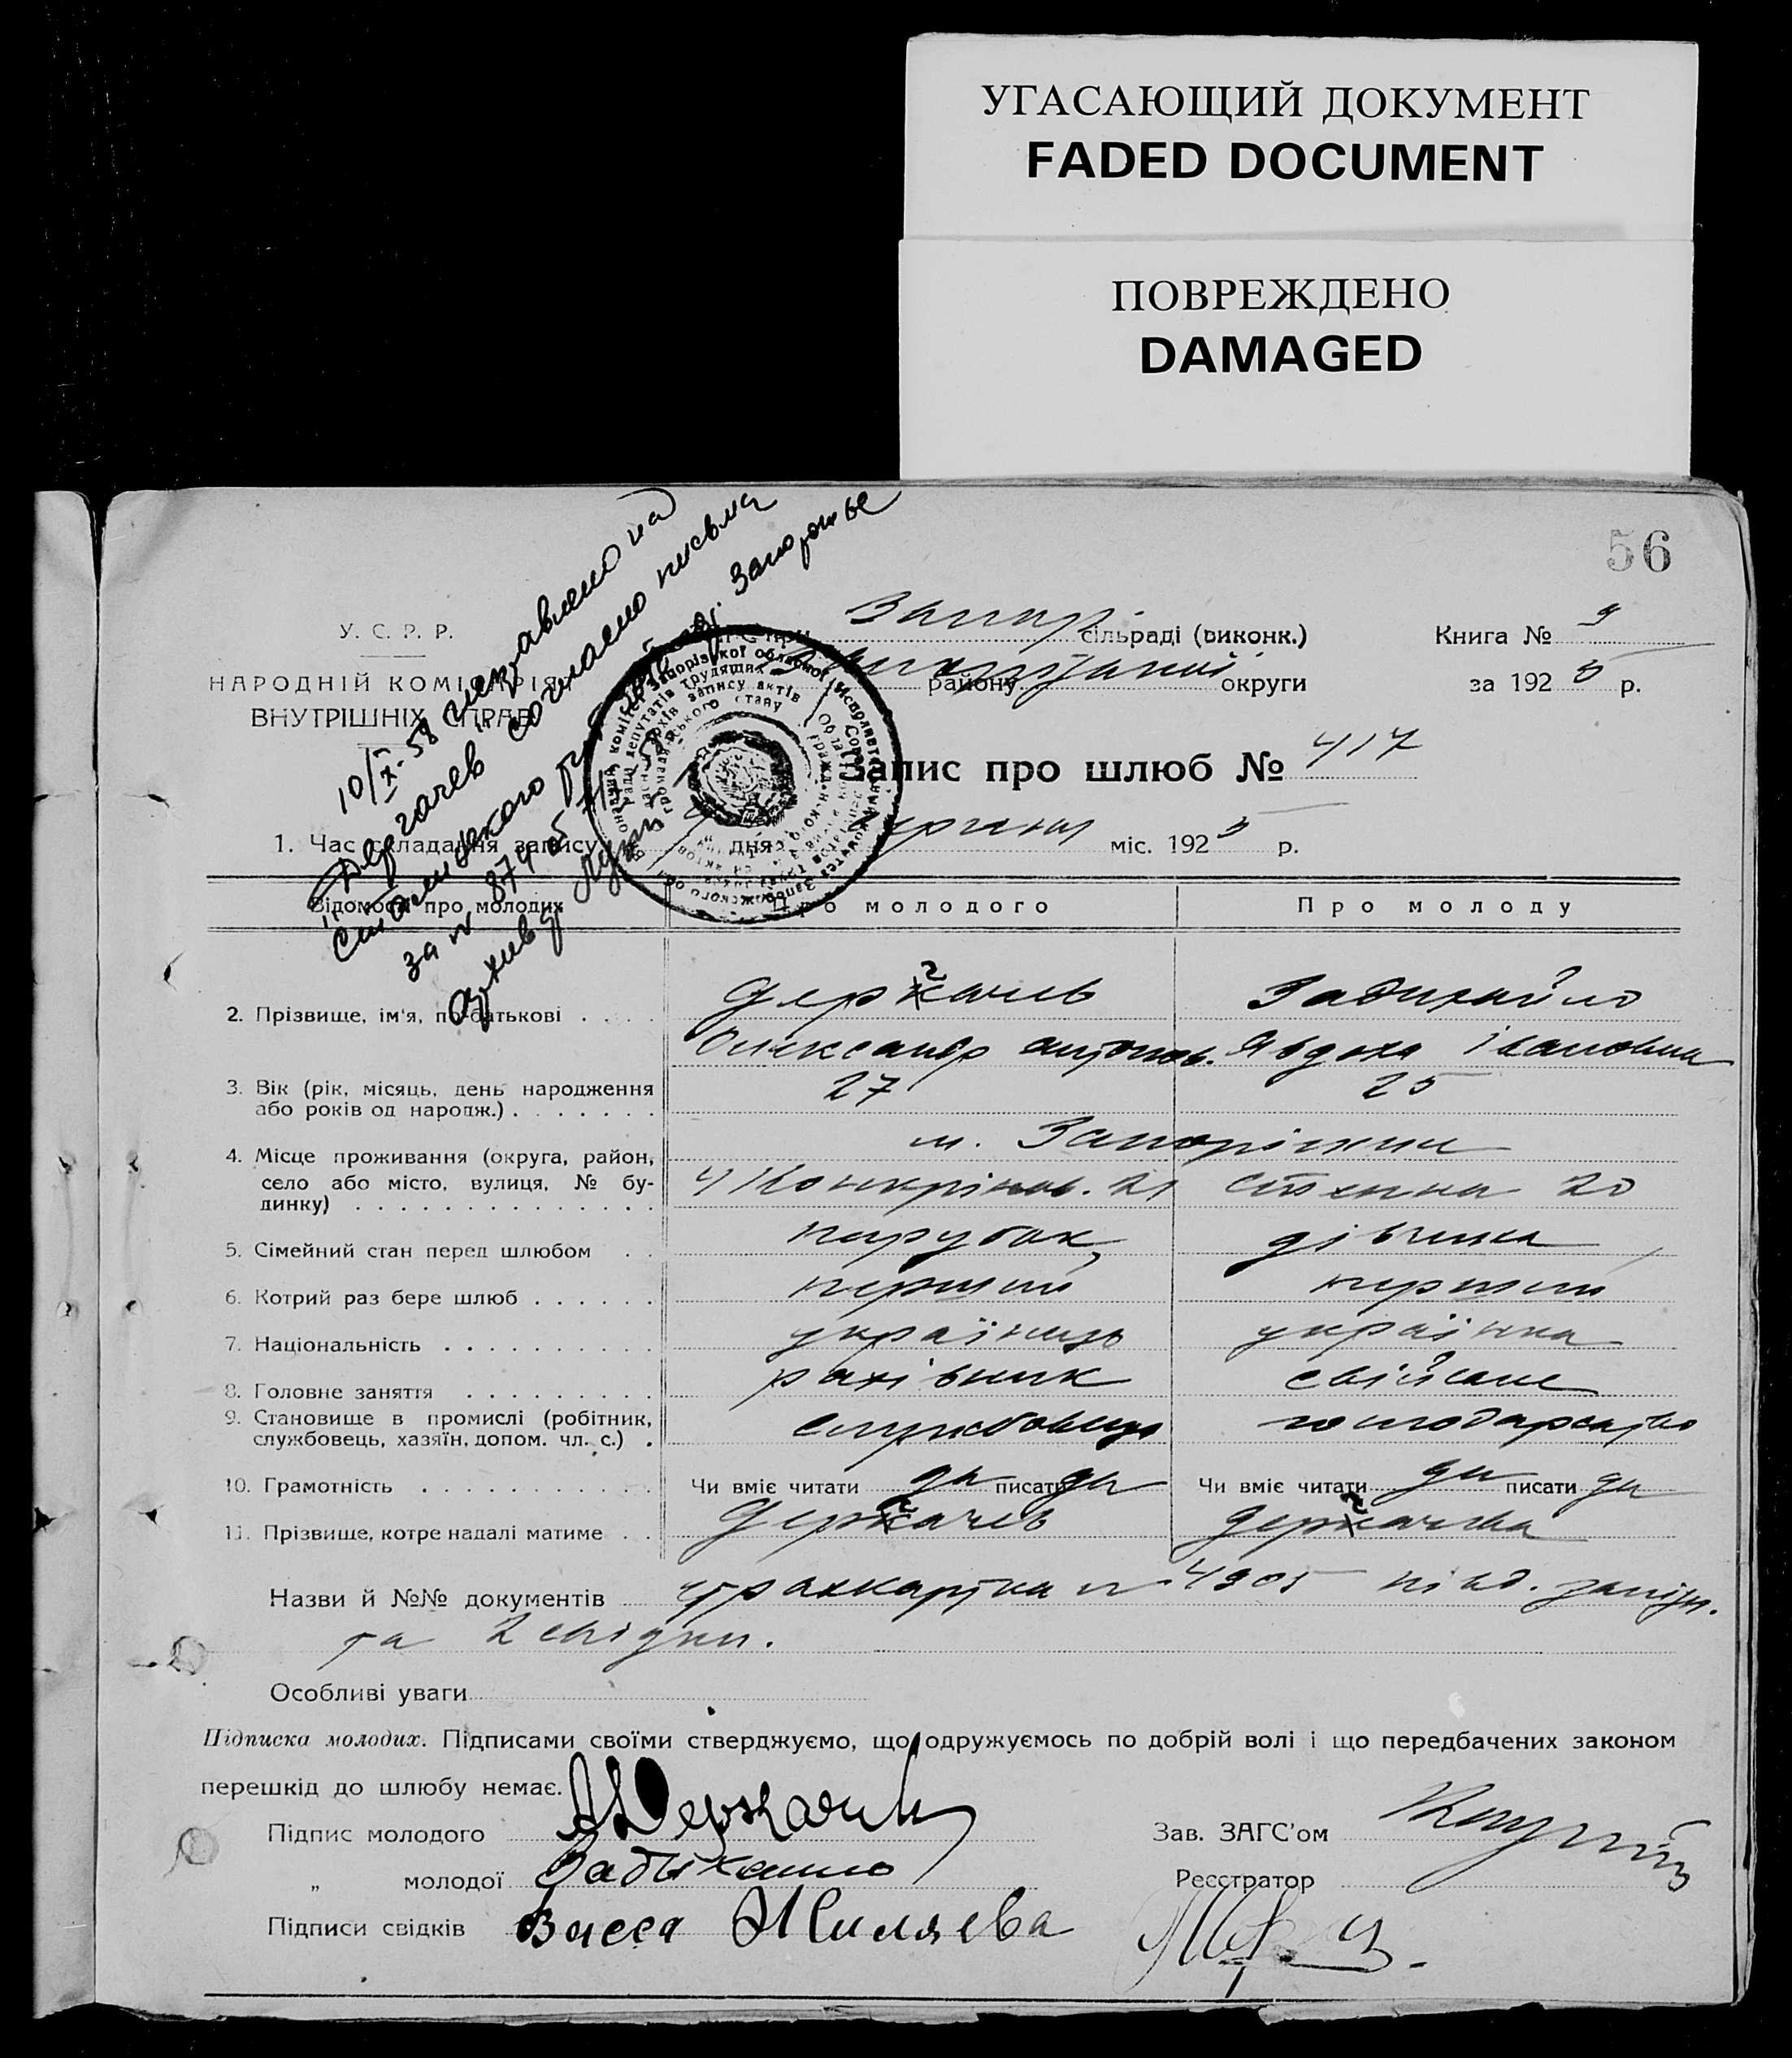 УГАСАЮЩИЙ ДОКУМЕНТ
FADED DOCUMENT
ПОВРЕЖДЕНО
DAMAGED
56
10/X-58 исправлено на
"Дергачев" согласно письма
за № 874 от
У. С. Р. Р.
НАРОДНІЙ КОМІСАРІЯТ
ВНУТРІШНІХ СПРАВ
сільраді (виконк.)
району округи
Книга № 9
за 1925 р.
Запис про шлюб № 417
1. Час складання запису дня серпня міс. 1925 р.
Відомості про молодих
Про молодого
Про молоду
2. Прізвище, ім'я, по-батькові
Дергачев
Олександр Антонов.
Задихайло
Явдоха Івановна
3. Вік (рік, місяць, день народження
або років од народж.)
27
25
4. Місце проживання (округа, район,
село або місто, вулиця, № бу-
динку)
м. Запоріжжя
21
20
5. Сімейний стан перед шлюбом
парубок
дівчина
6. Котрий раз бере шлюб
перший
перший
7. Національність
українець
українка
8. Головне заняття
рахівник
свійське
9. Становище в промислі (робітник,
службовець, хазяїн, допом. чл. с.)
службовець
господарство
10. Грамотність
Чи вміє читати да писати да
Чи вміє читати да писати да
11. Прізвище, котре надалі матиме
Дергачев
Дергачева
Назви й №№ документів
страхкартка № 4905 півд. заліз.
та 2 свідки.
Особливі уваги
Підписка молодих. Підписами своїми стверджуємо, що одружуємось по добрій волі і що передбачених законом
перешкід до шлюбу немає.
Підпис молодого
Зав. ЗАГС'ом
„ молодої
Задыхайло
Реєстратор
Підписи свідків
Васса Жиляева